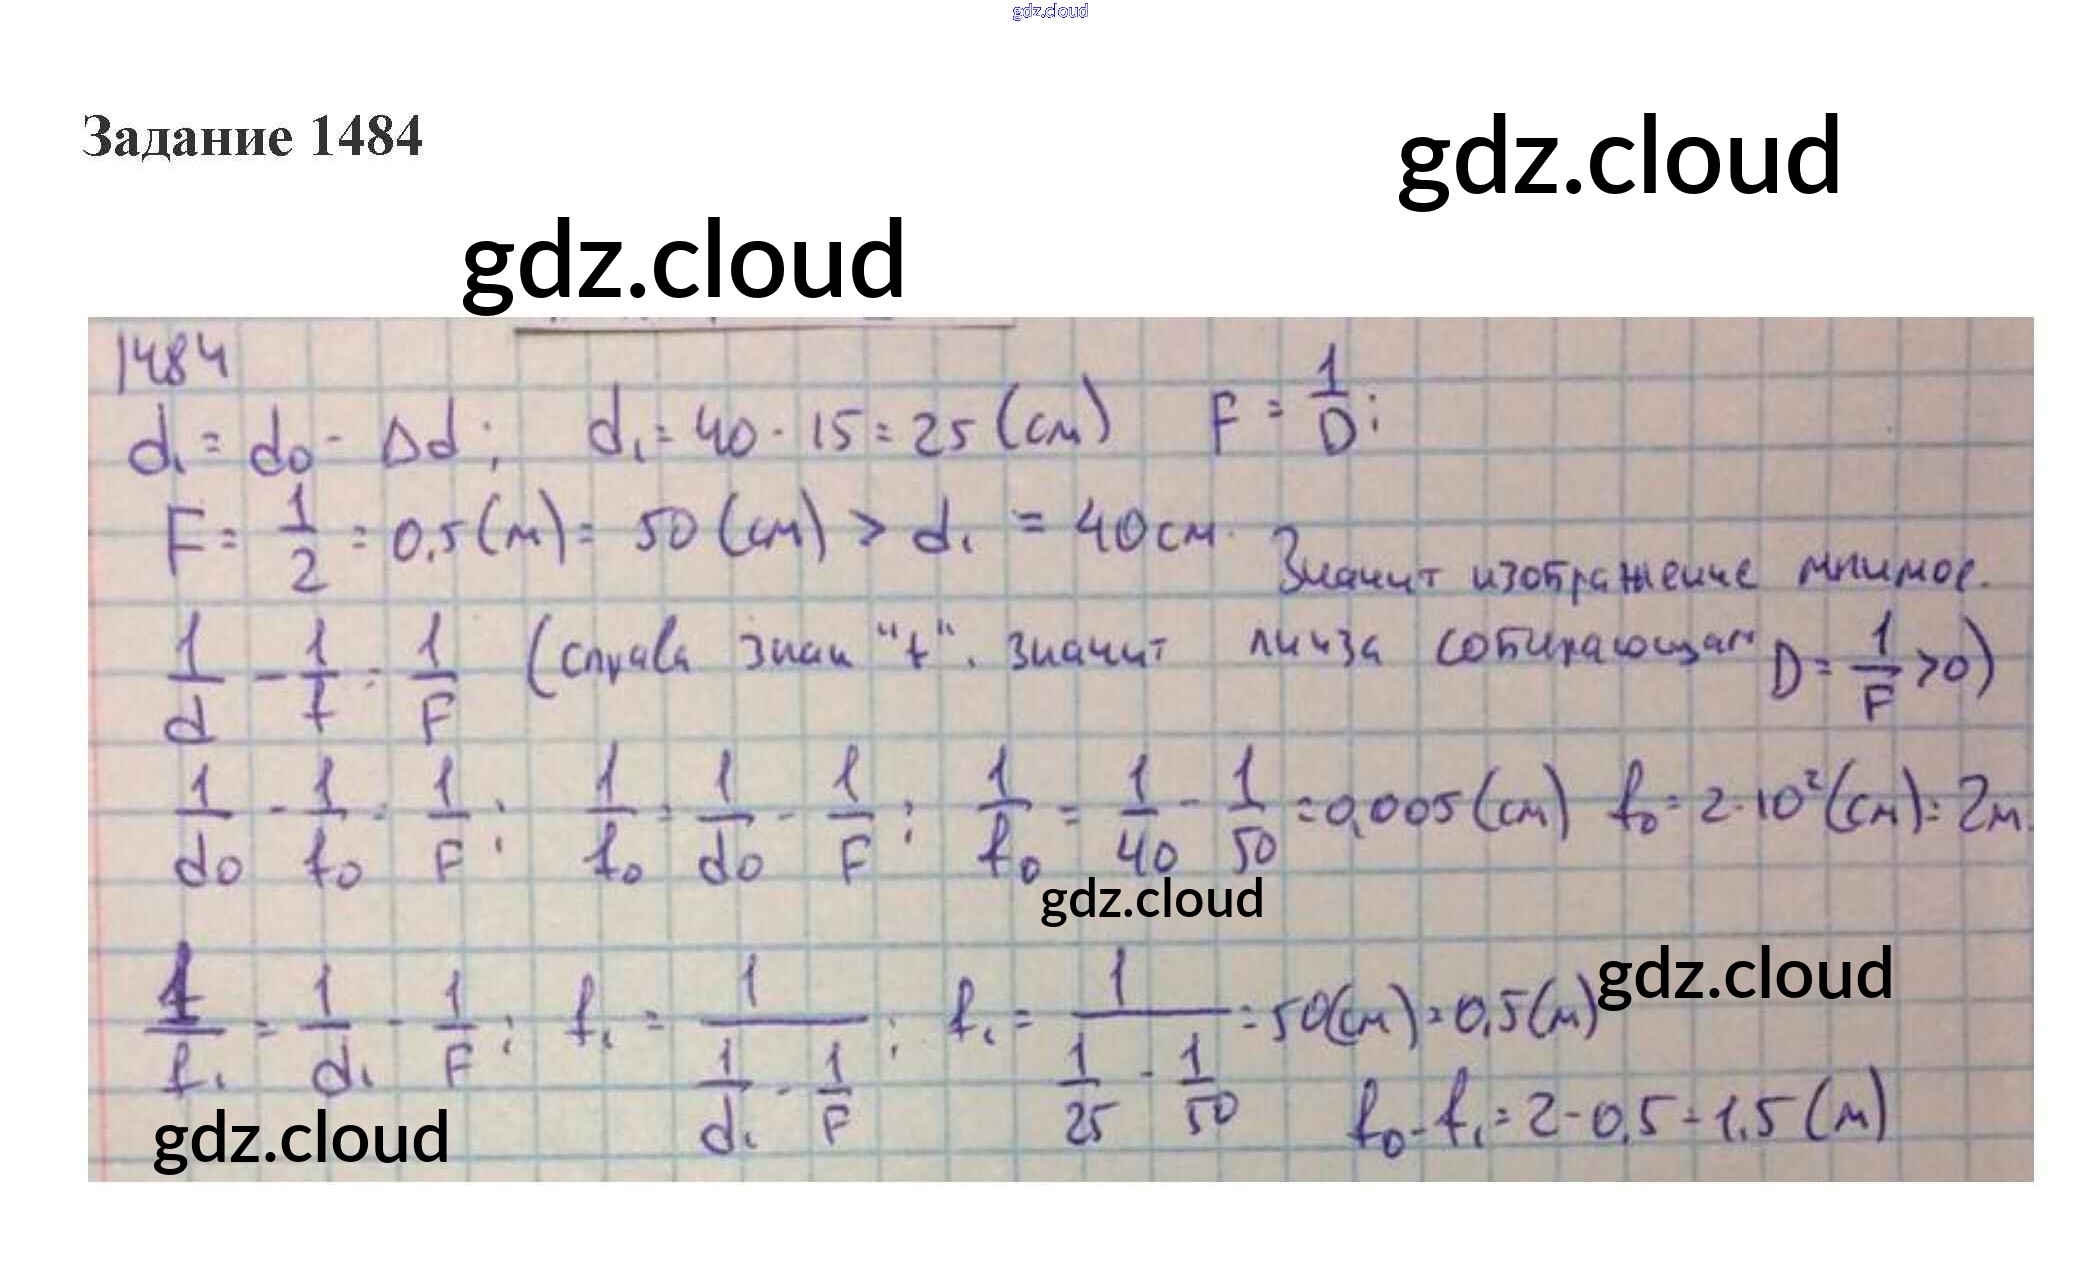 gdz.cloud
Задание 1484
gdz.cloud
gdz.cloud
1484
d₁ = d₀ - Δd; d₁ = 40 - 15 = 25 (см) F = 1/D;
F = 1/2 = 0,5 (м) = 50 (см) > d₁ = 40 см. Значит изображение мнимое.
1/d - 1/f = 1/F (справа знак "+", значит линза собирающая D = 1/F > 0)
1/d₀ - 1/f₀ = 1/F; 1/f₀ = 1/d₀ - 1/F; 1/f₀ = 1/40 - 1/50 = 0,005 (см) f₀ = 2·10² (см) = 2 м.
gdz.cloud
1/f₁ = 1/d₁ - 1/F; f₁ = 1/(1/d₁ - 1/F); f₁ = 1/(1/25 - 1/50) = 50 (см) = 0,5 (м)
gdz.cloud
f₀ - f₁ = 2 - 0,5 = 1,5 (м)
gdz.cloud